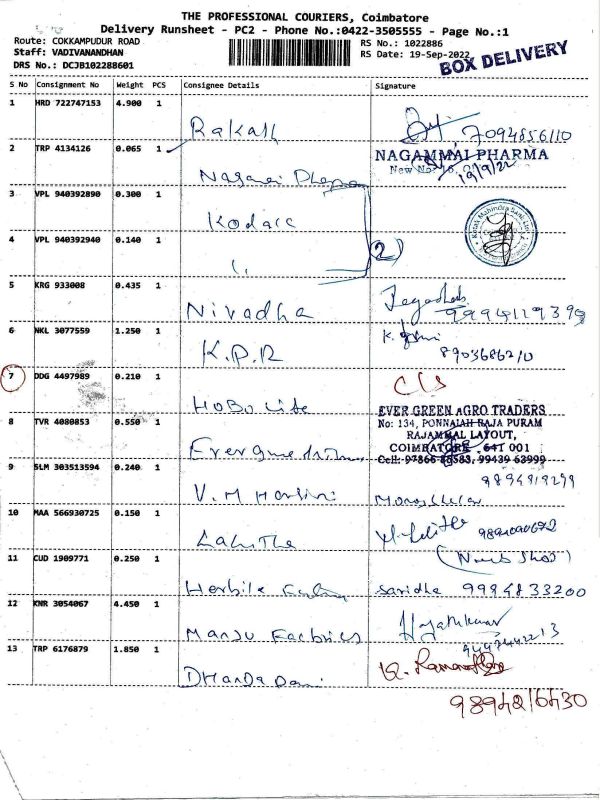 THE PROFESSIONAL COURIERS, Coimbatore
Delivery Runsheet - PC2 - Phone No.:0422-3505555 - Page No.:1
Route: COKKAMPUDUR ROAD RS No.: 1022886
Staff: VADIVANANDHAN RS Date: 19-Sep-2022
BOX DELIVERY
DRS No.: DCJB102288601
S No Consignment No Weight PCS Consignee Details Signature
1 HRD 722747153 4.900 1
Rakash 7094856110
2 TRP 4134126 0.065 1
NAGAMMAI PHARMA
New No: 16,
19/9/22
3 VPL 940392890 0.300 1
Kodacc
4 VPL 940392940 0.140 1
2)
Kotak Mahindra Bank Ltd
5 KRG 933008 0.435 1
Nivadha
6 NKL 3077559 1.250 1
K.P.R 8903686210
7 DDG 4497989 0.210 1
C/S
HoBo Lite
8 TVR 4080853 0.550 1
EVER GREEN AGRO TRADERS
No: 134, PONNAIAH RAJA PURAM
RAJAMMAL LAYOUT,
COIMBATORE 641 001
Cell: 97866 99439 63999
9 SLM 303513594 0.240 1
8894819299
V.M
10 MAA 566930725 0.150 1
Lalitha
11 CUD 1909771 0.250 1
Herbile saridha 9994833200
12 KNR 3054067 4.450 1
Manju Fabrics
13 TRP 6176879 1.850 1
Dhandapani
9894216430